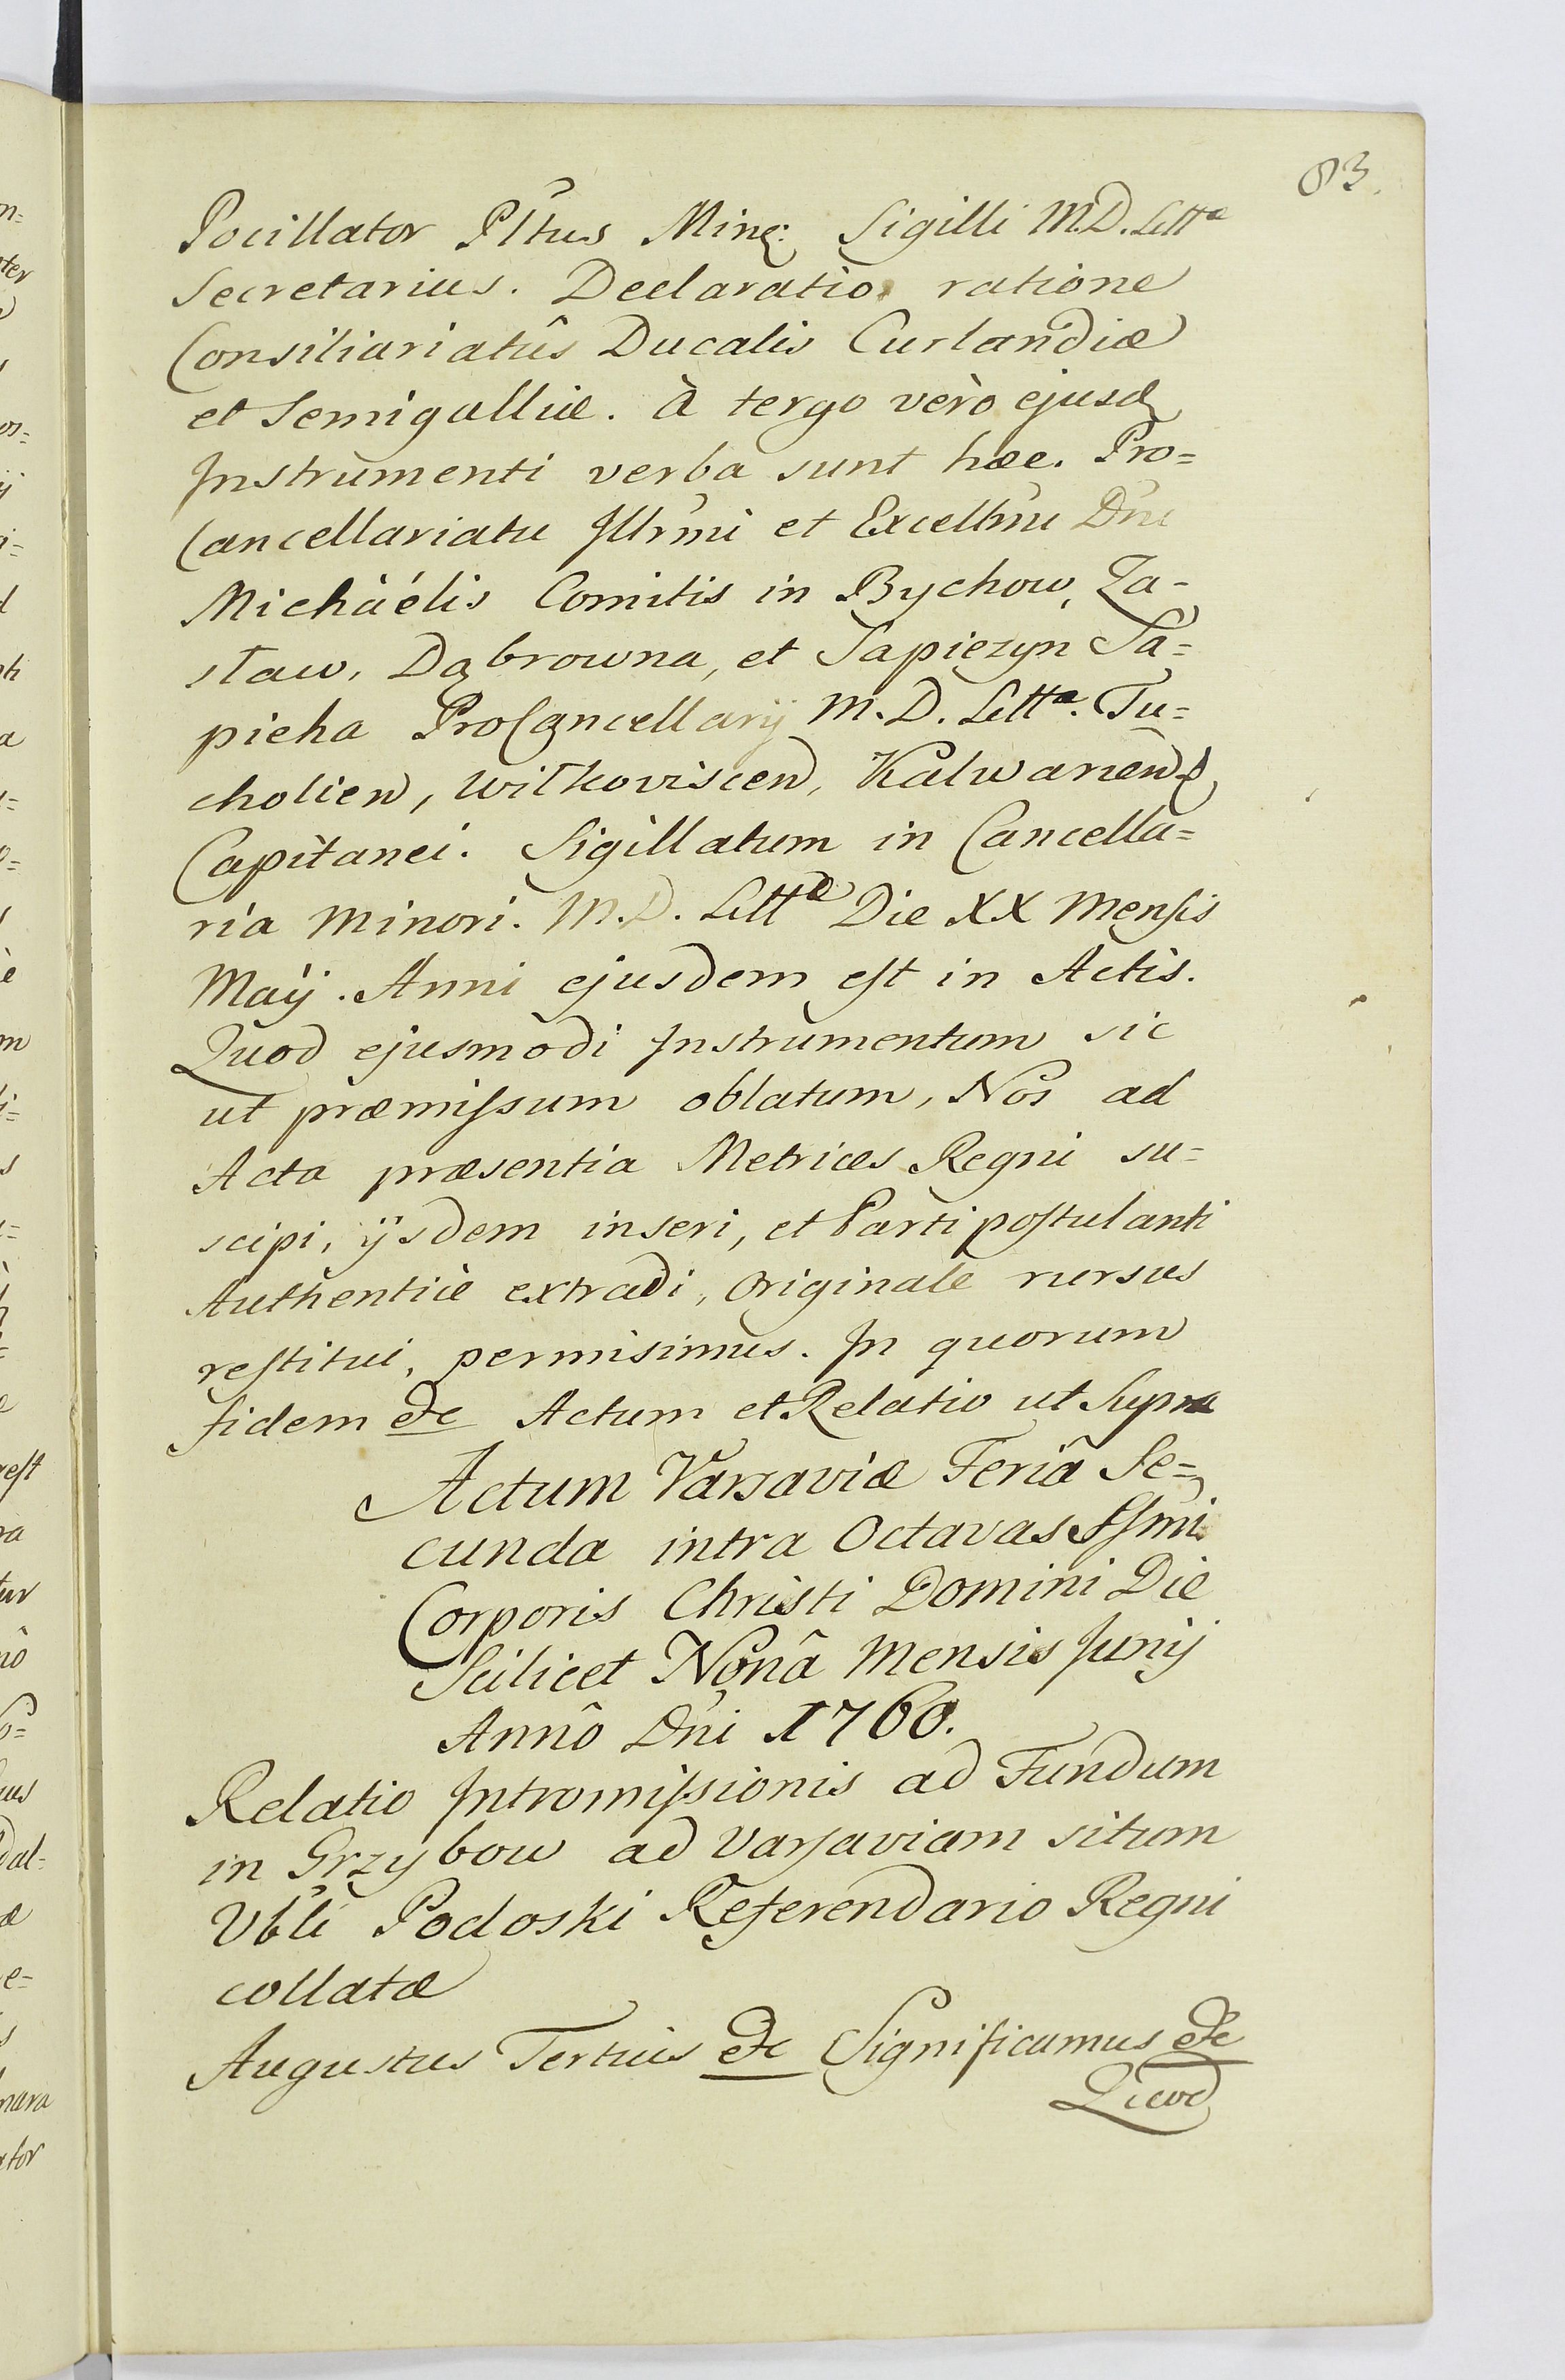 83.
Pocillator Pltus Minq: Sigilli M.D. Litt^a
Secretarius. Declaratio ratione
Consiliariatûs Ducalis Curlandiæ
et Semigalliæ. à tergo verò ejusd
Instrumenti verba sunt hæc. Pro=
Cancellariatu Illrmi et Excellmi Dni
Michäélis Comitis in Bychow, Za-
sław, Dąbrowna, et Sapiezyn Sa=
pieha ProCancellarij M.D. Litt^a. Tu=
cholien, Wiłkoviscen, Kalwarien
Capitanei. Sigillatum in Cancella=
ria Minori. M.D. Litt^æ Die XX Mensis
Maÿ. Anni ejusdem est in Actis.
Quod ejusmodi Instrumentum sic
ut præmissum oblatum, Nos ad
Acta præsentia Metrices Regni su=
scipi, ijsdem inseri, et Parti postulanti
Authenticè extradi, originale rursus
restitui, permisimus. In quorum
fidem etc Actum et Relatio ut Supra
Actum Varsaviæ Feriâ Se=
cunda intra Octavas SSmi
Corporis Christi Domini Die
Scilicet Nonâ Mensis Junij
Annô Dni 1760.
Relatio Intromissionis ad Fundum
in Grzybow ad Varsaviam situm
Vbli Podoski Referendario Regni
collatæ
Augustus Tertius etc Significamus etc
Quod